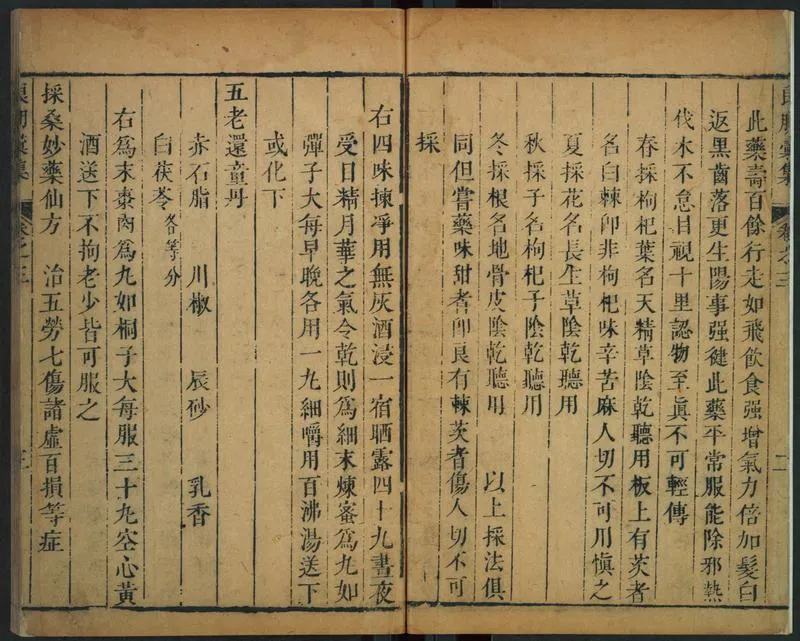 良朋彙集 卷之三 二
此藥壽百餘行走如飛飲食强增氣力倍加髮白
返黑齒落更生陽事强健此藥平常服能除邪熱
伐木不怠目視十里認物至眞不可輕傳
春採枸杞葉名天精草陰乾聽用板上有茨者
名白棘卽非枸杞味辛苦麻人切不可用愼之
夏採花名長生草陰乾聽用
秋採子名枸杞子陰乾聽用
冬採根名地骨皮陰乾聽用 以上採法俱
同但嘗藥味甜者卽良有棘茨者傷人切不可
採
右四味揀淨用無灰酒浸一宿晒露四十九晝夜
受日精月華之氣令乾則爲細末煉蜜爲丸如
彈子大每早晚各用一丸細嚼用百沸湯送下
或化下
五老還童丹
赤石脂 川椒 辰砂 乳香
白茯苓 各等分
右爲末棗肉爲丸如桐子大每服三十丸空心黃
酒送下不拘老少皆可服之
採桑妙藥仙方 治五勞七傷諸虛百損等症
良朋彙集 卷之三 三